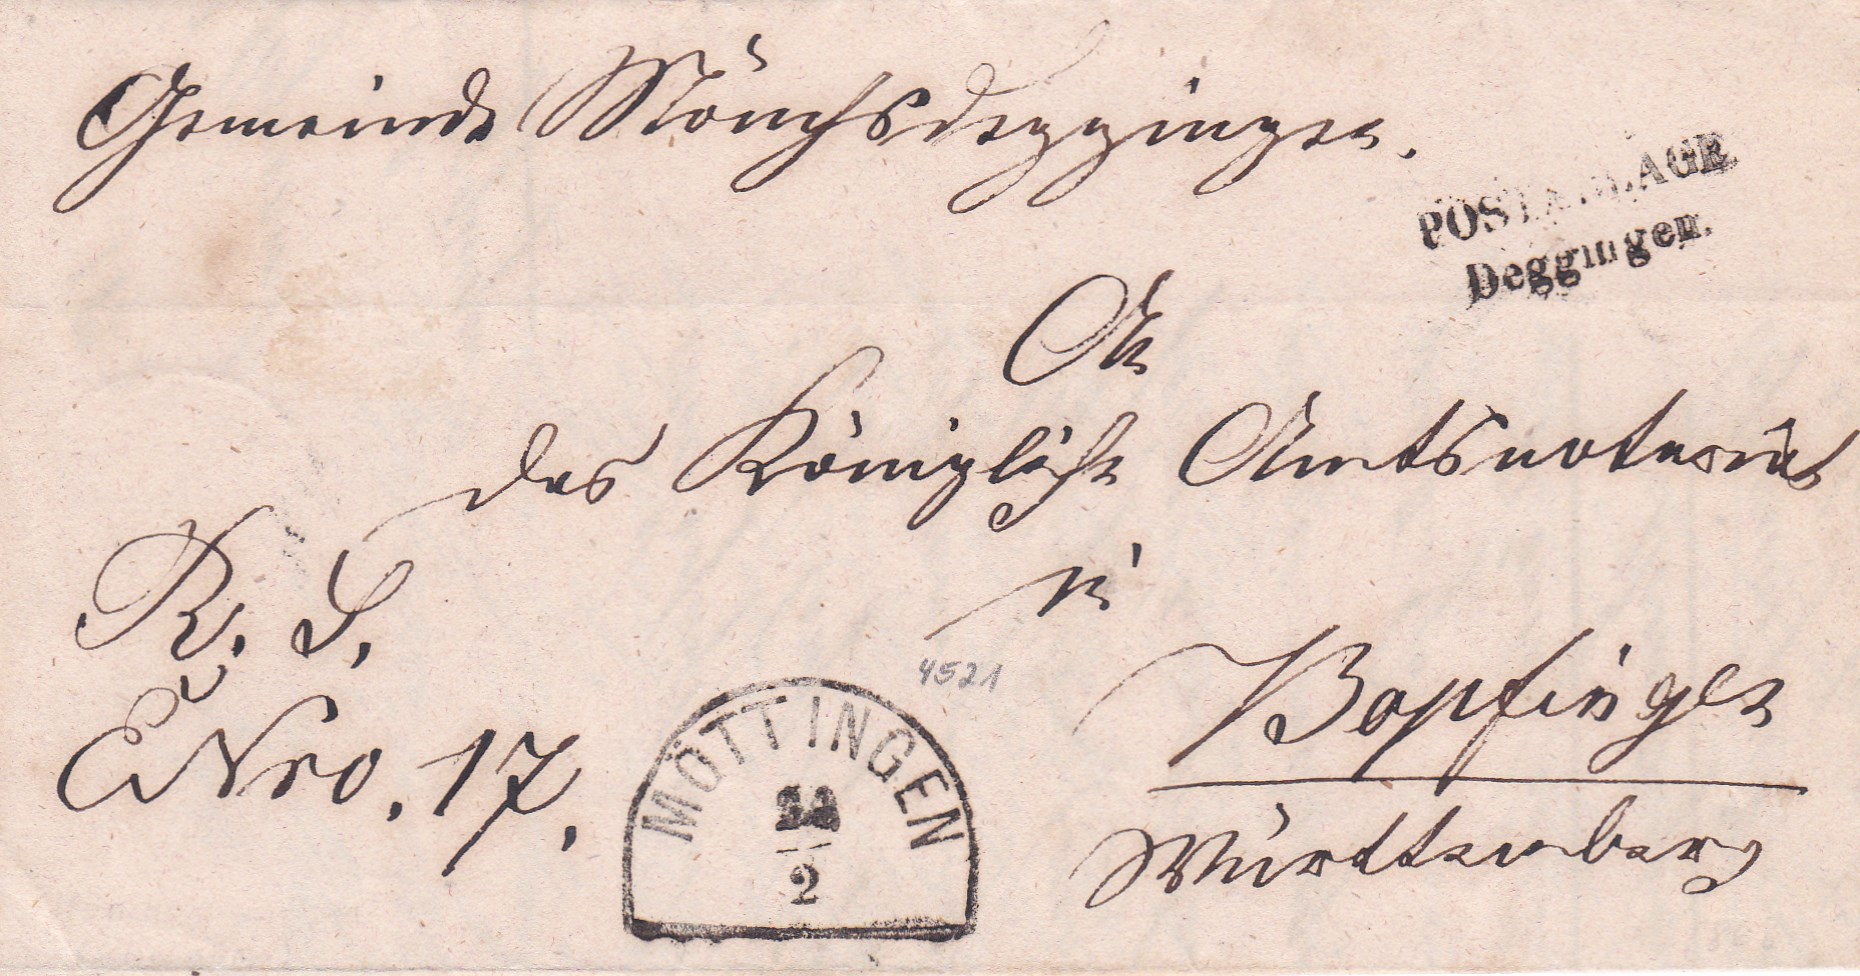 Gemeinde Mönchsdeggingen.
POSTABLAGE
Deggingen.
An
das Königliche Amtsnotariat
in
R. S.
Bopfingen
4521
E Nro. 17.
Württemberg
MÖTTINGEN
2